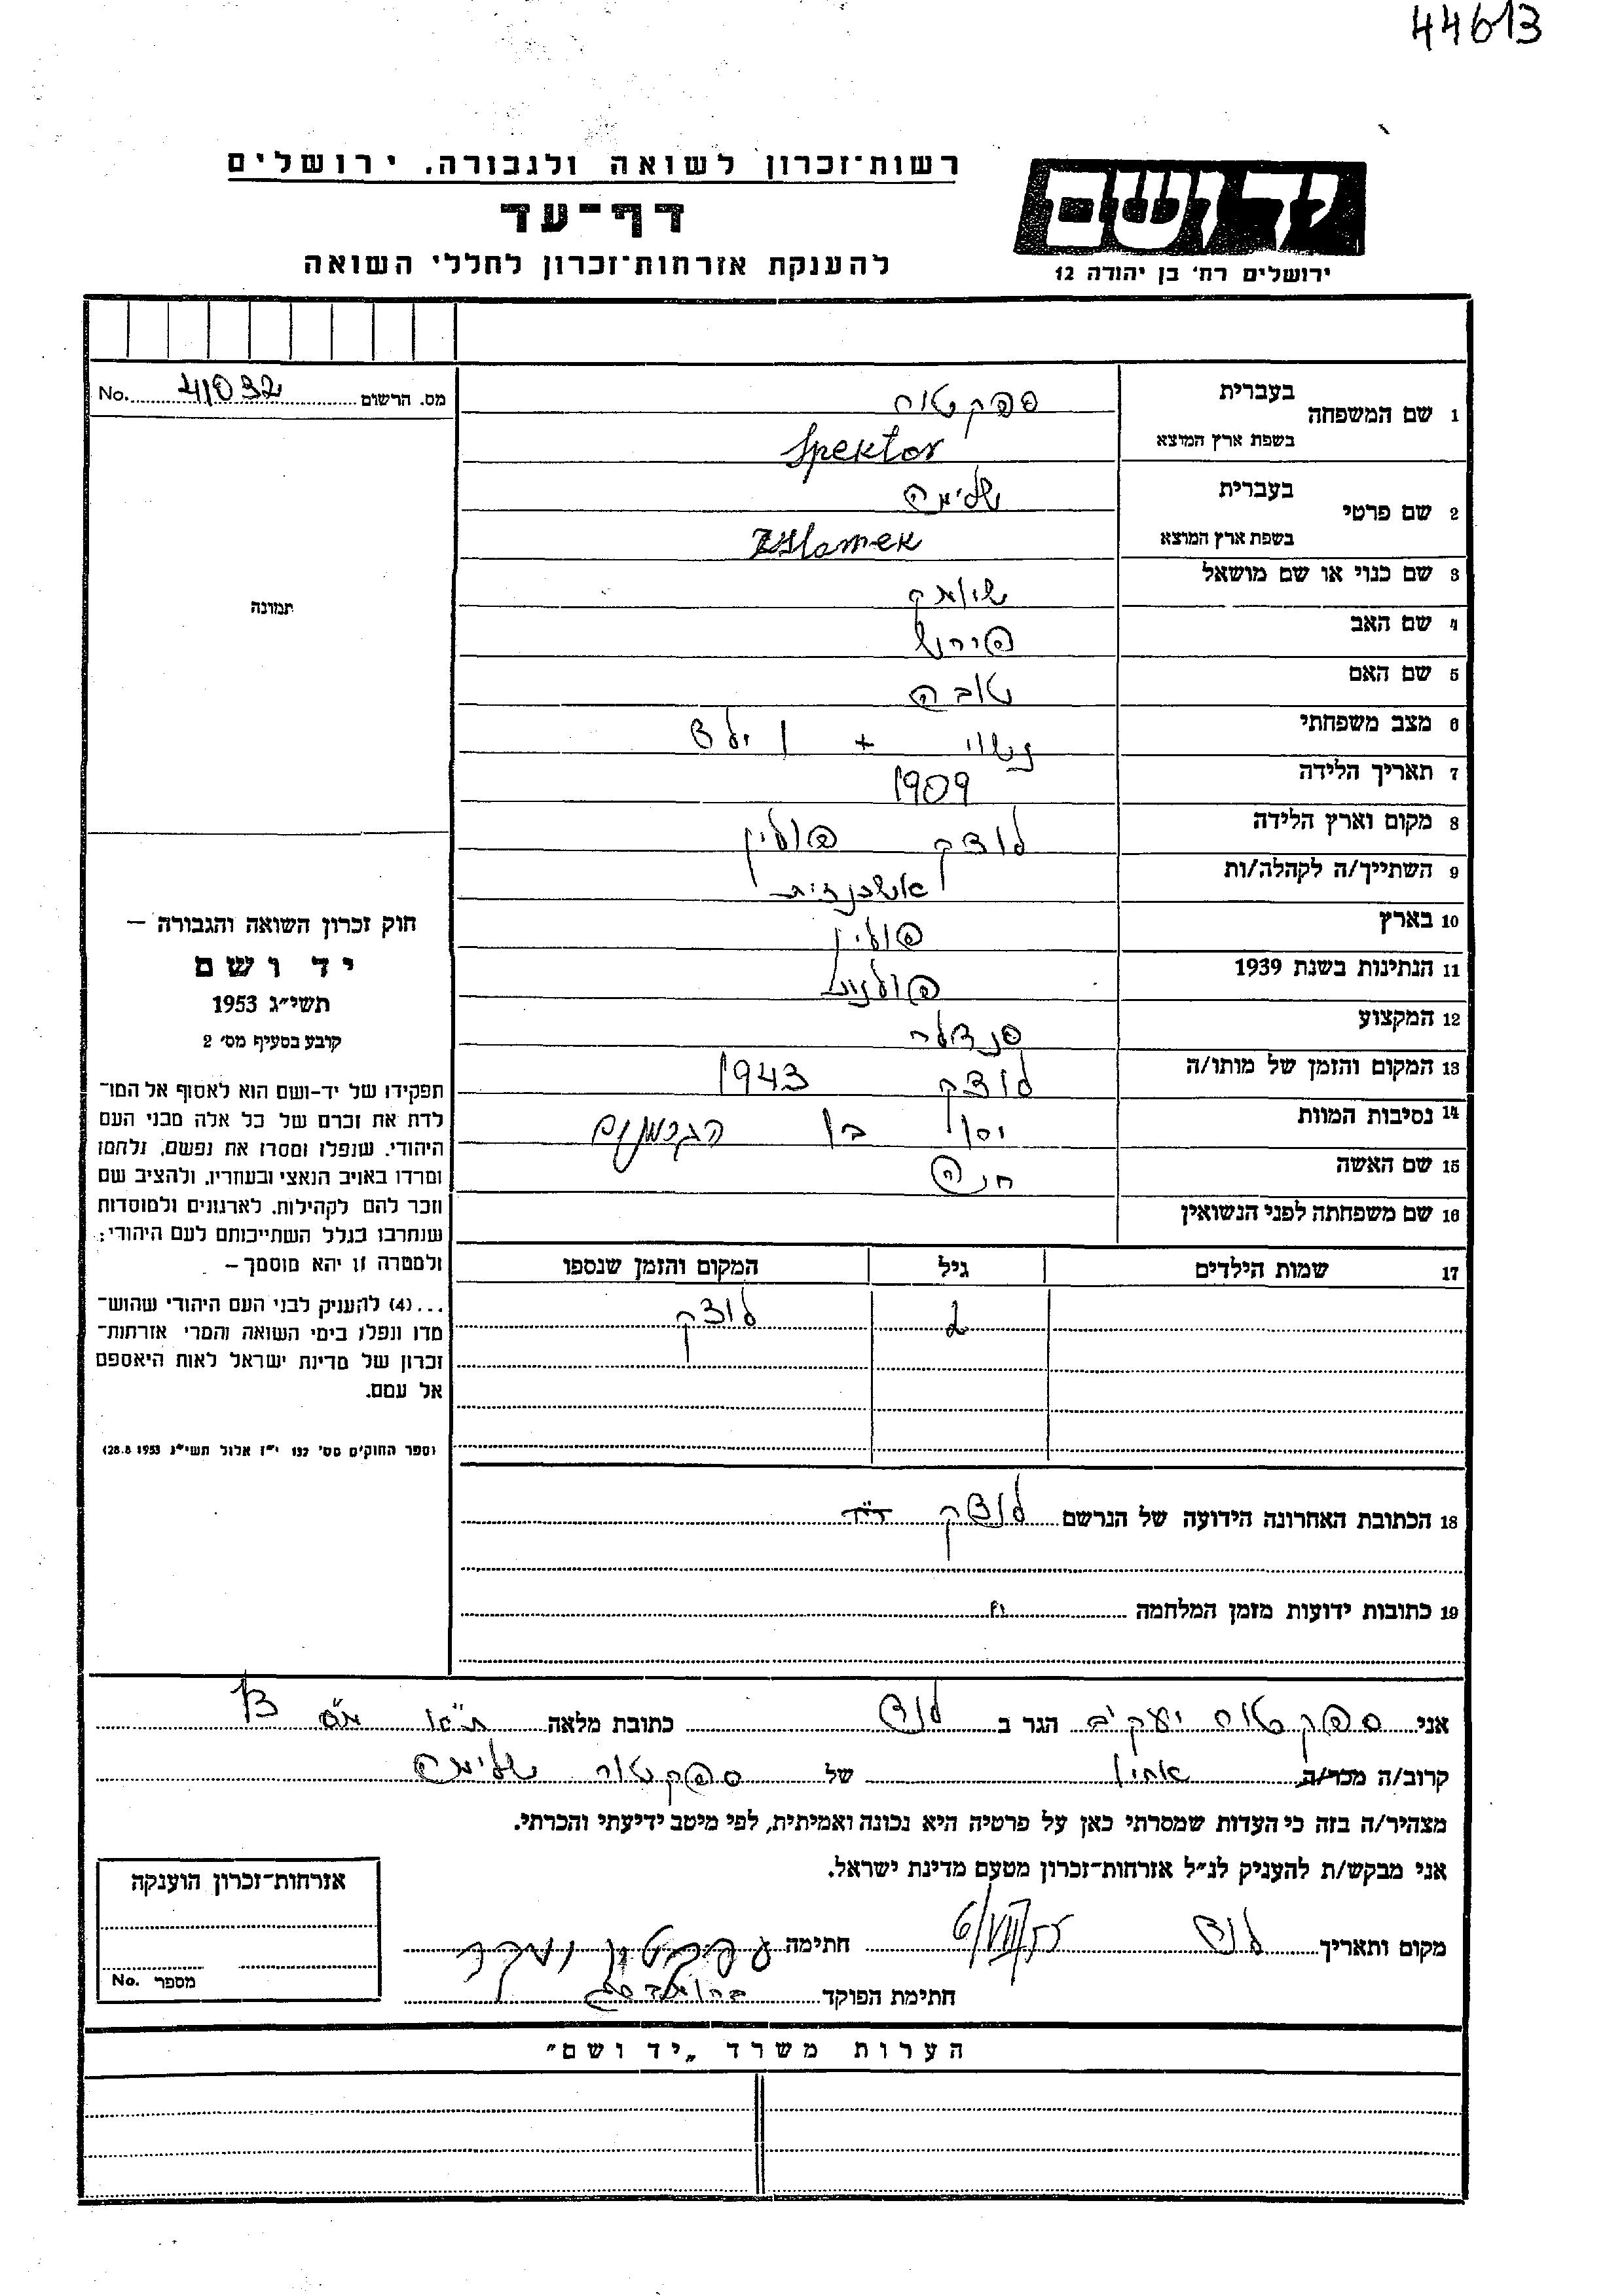 44613
רשות־זכרון לשואה ולגבורה, ירושלים
דף־עד
להענקת אזרחות־זכרון לחללי השואה
יד ושם
ירושלים רח' בן יהודה 12
מס. הרשום 41032 No.
1 שם המשפחה בעברית ספקטור
בשפת ארץ המוצא Spektor
2 שם פרטי בעברית
בשפת ארץ המוצא
3 שם כנוי או שם מושאל
4 שם האב
5 שם האם טובה
6 מצב משפחתי נשוי + 1 ילד
7 תאריך הלידה 1909
8 מקום וארץ הלידה לודצק פולין
9 השתייך/ה לקהלה/ות אשכנזית
10 בארץ פולין
11 הנתינות בשנת 1939 פולנית
12 המקצוע סנדלר
13 המקום והזמן של מותו/ה לודצק 1943
14 נסיבות המוות הגרמנים
15 שם האשה חנה
16 שם משפחתה לפני הנשואין
17 שמות הילדים גיל המקום והזמן שנספו
2 לודצק
18 הכתובת האחרונה הידועה של הנרשם לודצק
19 כתובות ידועות מזמן המלחמה "
תמונה
חוק זכרון השואה והגבורה –
יד ושם
תשי"ג 1953
קובע בסעיף מס' 2
תפקידו של יד-ושם הוא לאסוף אל המו־
לדת את זכרם של כל אלה מבני העם
היהודי, שנפלו ומסרו את נפשם, נלחמו
ומרדו באויב הנאצי ובעוזריו, ולהציב שם
וזכר להם לקהילות, לארגונים ולמוסדות
שנחרבו בגלל השתייכותם לעם היהודי;
ולמטרה זו יהא מוסמך –
...(4) להעניק לבני העם היהודי שהוש־
מדו ונפלו בימי השואה והמרי אזרחות־
זכרון של מדינת ישראל לאות היאספם
אל עמם.
(ספר החוקים מס' 132 י"ז אלול תשי"ג 28.8.1953)
אני ספקטור יעקב הגר ב לוד כתובת מלאה
קרוב/ה מכר/ה של ספקטור
מצהיר/ה בזה כי העדות שמסרתי כאן על פרטיה היא נכונה ואמיתית, לפי מיטב ידיעתי והכרתי.
אני מבקש/ת להעניק לנ"ל אזרחות־זכרון מטעם מדינת ישראל.
מקום ותאריך לוד 6/VIII/55 חתימה
חתימת הפוקד
אזרחות־זכרון הוענקה
מספר No.
הערות משרד „יד ושם"